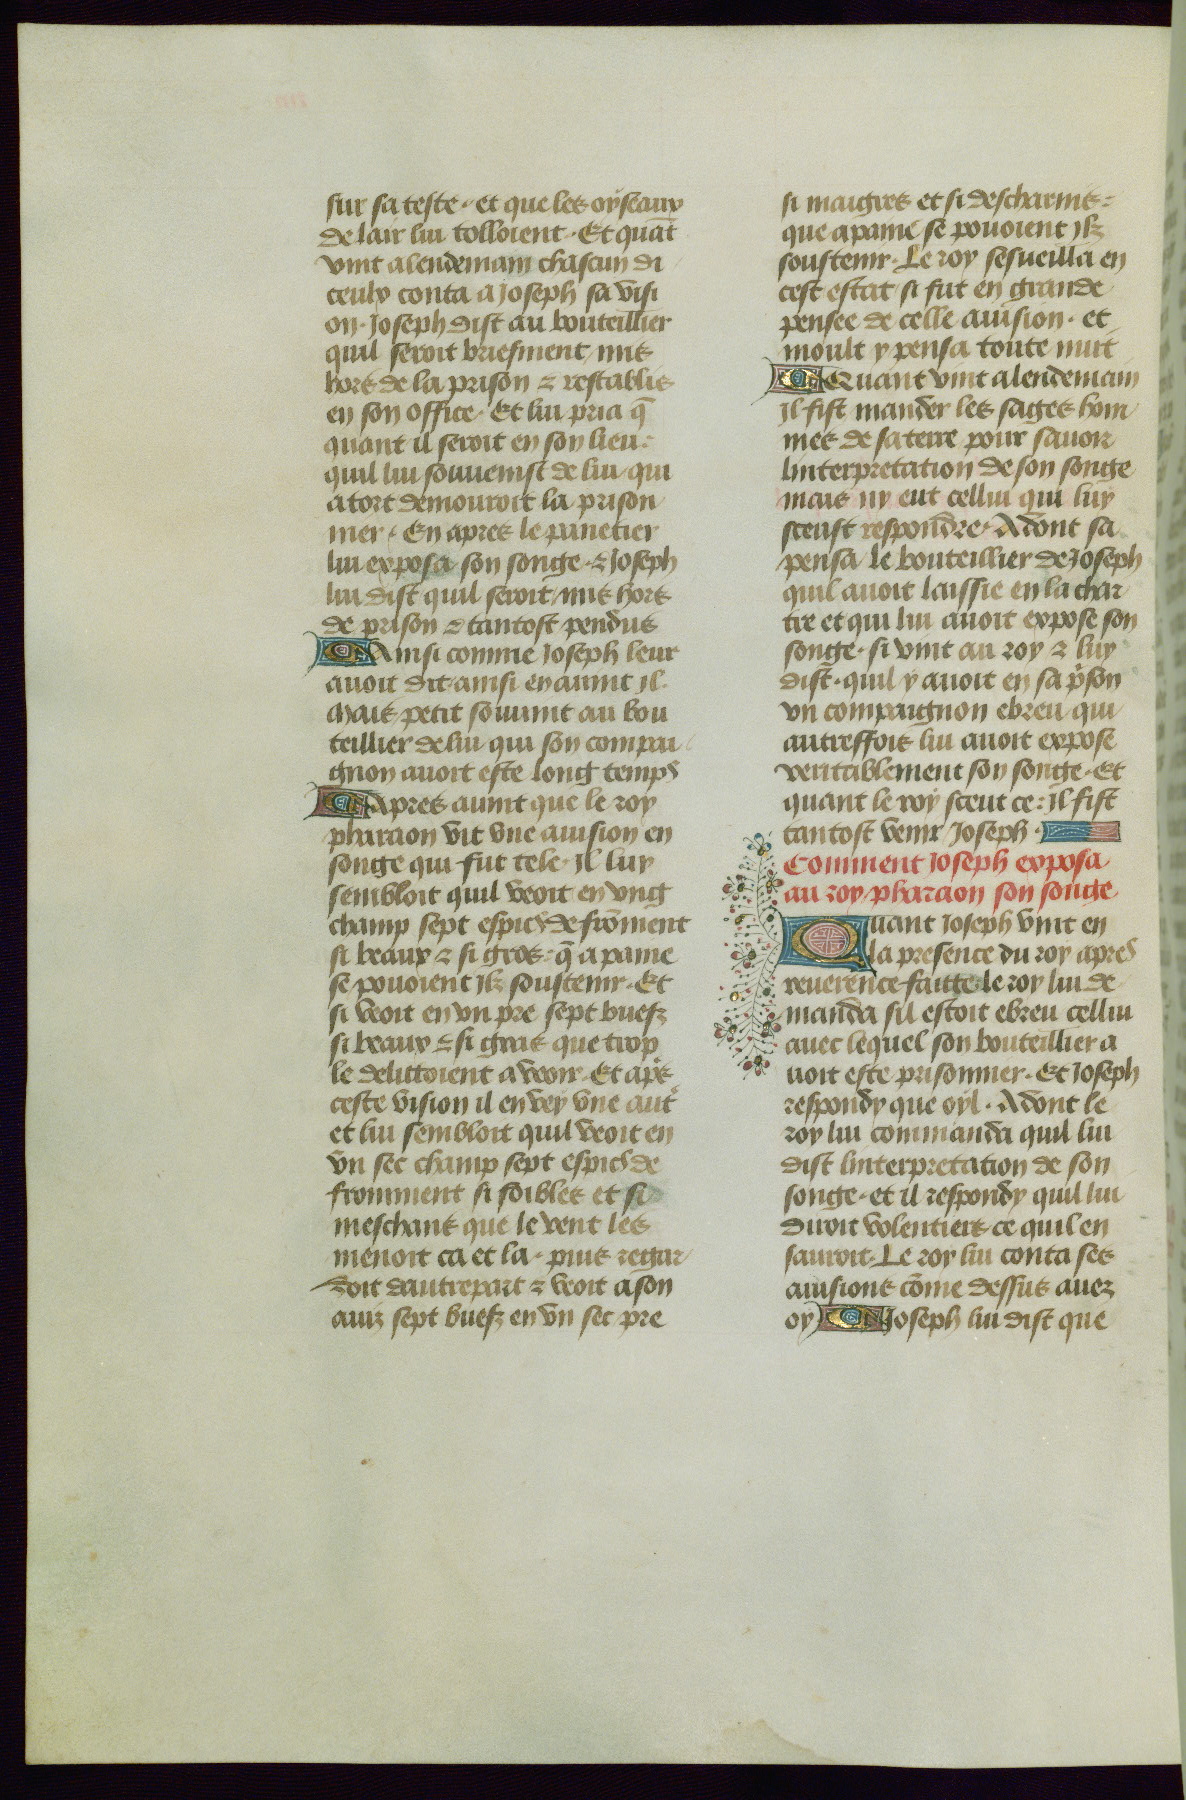 sur sa teste · et que les oyseaux
de lair lui tolloient · Et quāt
vint a lendemain chascun di
ceulx conta a Joseph sa visi
on · Joseph dist au bouteillier
quil seroit briefment mis
hors de la prison ⁊ restablis
en son office · Et lui pria q̄
quant il seroit en son lieu :
quil lui souuenist de lui qui
a tort demouroit la prison
nier · En apres le panetier
lui exposa son songe · ⁊ Joseph
lui dist quil seroit mis hors
de prison ⁊ tantost pendus
Ainsi comme Joseph leur
auoit dit ainsi en auint il
Mais petit souuint au bou
teillier de lui qui son compai
gnon auoit este long temps
Apres auint que le roy
pharaon vit vne auision en
songe qui fut tele · Il luy
sembloit quil veoit en vng
champ sept espics de froment
si beaux ⁊ si gros · q̄ a paine
se pouoient ilz soustenir · Et
si veoit en vn pre sept buefz
si beaux ⁊ si gras que trop
le delittoient a veoir · Et apꝰs
ceste vision il en vey vne autr̄
et lui sembloit quil veoit en
vn sec champ sept espics de
fromment si foibles et si
meschans que le vent les
menoit ca et la · puis regar
doit dautre part ⁊ veoit a son
auiz sept buefz en vn sec pre
si maigres et si descharnis :
que a paine se pouoient ilz
soustenir · Le roy sesueilla en
cest estat si fut en grande
pensee de celle auision · et
moult y pensa toute nuit
Quant vint a lendemain
il fist mander les sages hom
mes de sa terre pour sauoir
linterpretation de son songe
mais ny eut cellui qui luy
sceust respondre · Adont sa
pensa le bouteillier de Joseph
quil auoit laissie en la char
tre et qui lui auoit expose son
songe · si vint au roy ⁊ luy
dist · quil y auoit en sa p̄son
vn compaignon ebreu qui
autreffois lui auoit expose
veritablement son songe · Et
quant le roy sceut ce : il fist
tantost venir Joseph ·
Comment Joseph exposa
au roy pharaon son songe
Quant Joseph vint en
la presence du roy apres
reuerence faitte le roy lui de
manda sil estoit ebreu cellui
auec lequel son bouteillier a
uoit este prisonnier · Et Joseph
respondy que oyl · Adont le
roy lui commanda quil lui
dist linterpretation de son
songe · et il respondy quil lui
diroit volentiers ce quil en
sauroit · Le roy lui conta ses
auisions cōme dessus auez
oy Joseph lui dist que